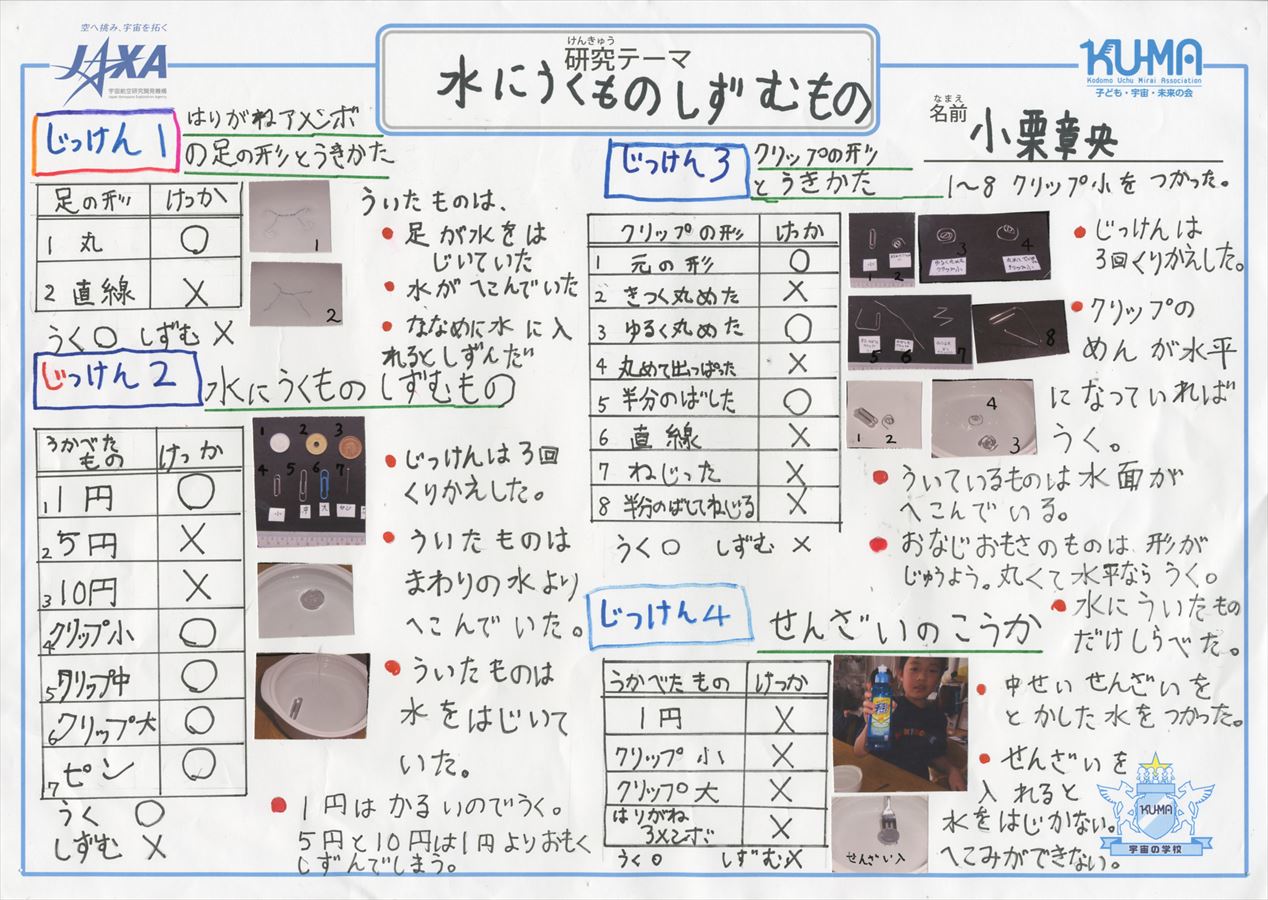 空へ挑み、宇宙を拓く
JAXA
宇宙航空研究開発機構
Japan Aerospace Exploration Agency
けんきゅう
研究テーマ
水にうくものしずむもの
KU-MA
Kodomo Uchu Mirai Association
子ども・宇宙・未来の会
なまえ
名前
小栗章央
じっけん1
はりがねアメンボ
の足の形とうきかた
足の形 けっか
1 丸 ○
2 直線 ×
うく○ しずむ×
1
2
ういたものは、
足が水をは
じいていた
水がへこんでいた
ななめに水に入
れるとしずんだ
じっけん2
水にうくものしずむもの
うかべた
もの けっか
1 1円 ○
2 5円 ×
3 10円 ×
4 クリップ小 ○
5 クリップ中 ○
6 クリップ大 ○
7 ピン ○
うく ○
しずむ ×
1 2 3
4 5 6 7
小 中 大 ピン
じっけんは3回
くりかえした。
ういたものは
まわりの水より
へこんでいた。
ういたものは
水をはじいて
いた。
1円はかるいのでうく。
5円と10円は1円よりおもく
しずんでしまう。
じっけん3
クリップの形
とうきかた
1〜8 クリップ小をつかった。
クリップの形 けっか
1 元の形 ○
2 きつく丸めた ×
3 ゆるく丸めた ○
4 丸めて出っぱった ×
5 半分のばした ○
6 直線 ×
7 ねじった ×
8 半分のばしてねじる ×
うく○ しずむ ×
小
1 2
3 4
5 6 7
8
1 2
4
3
じっけんは
3回くりかえした。
クリップの
めんが水平
になっていれば
うく。
ういているものは水面が
へこんでいる。
おなじおもさのものは形が
じゅうよう。丸くて水平ならうく。
じっけん4
せんざいのこうか
水にういたもの
だけしらべた。
うかべたもの けっか
1円 ×
クリップ小 ×
クリップ大 ×
はりがね
アメンボ ×
うく○ しずむ×
せんざい入
中せいせんざいを
とかした水をつかった。
せんざいを
入れると
水をはじかない。
へこみができない。
KU-MA
宇宙の学校